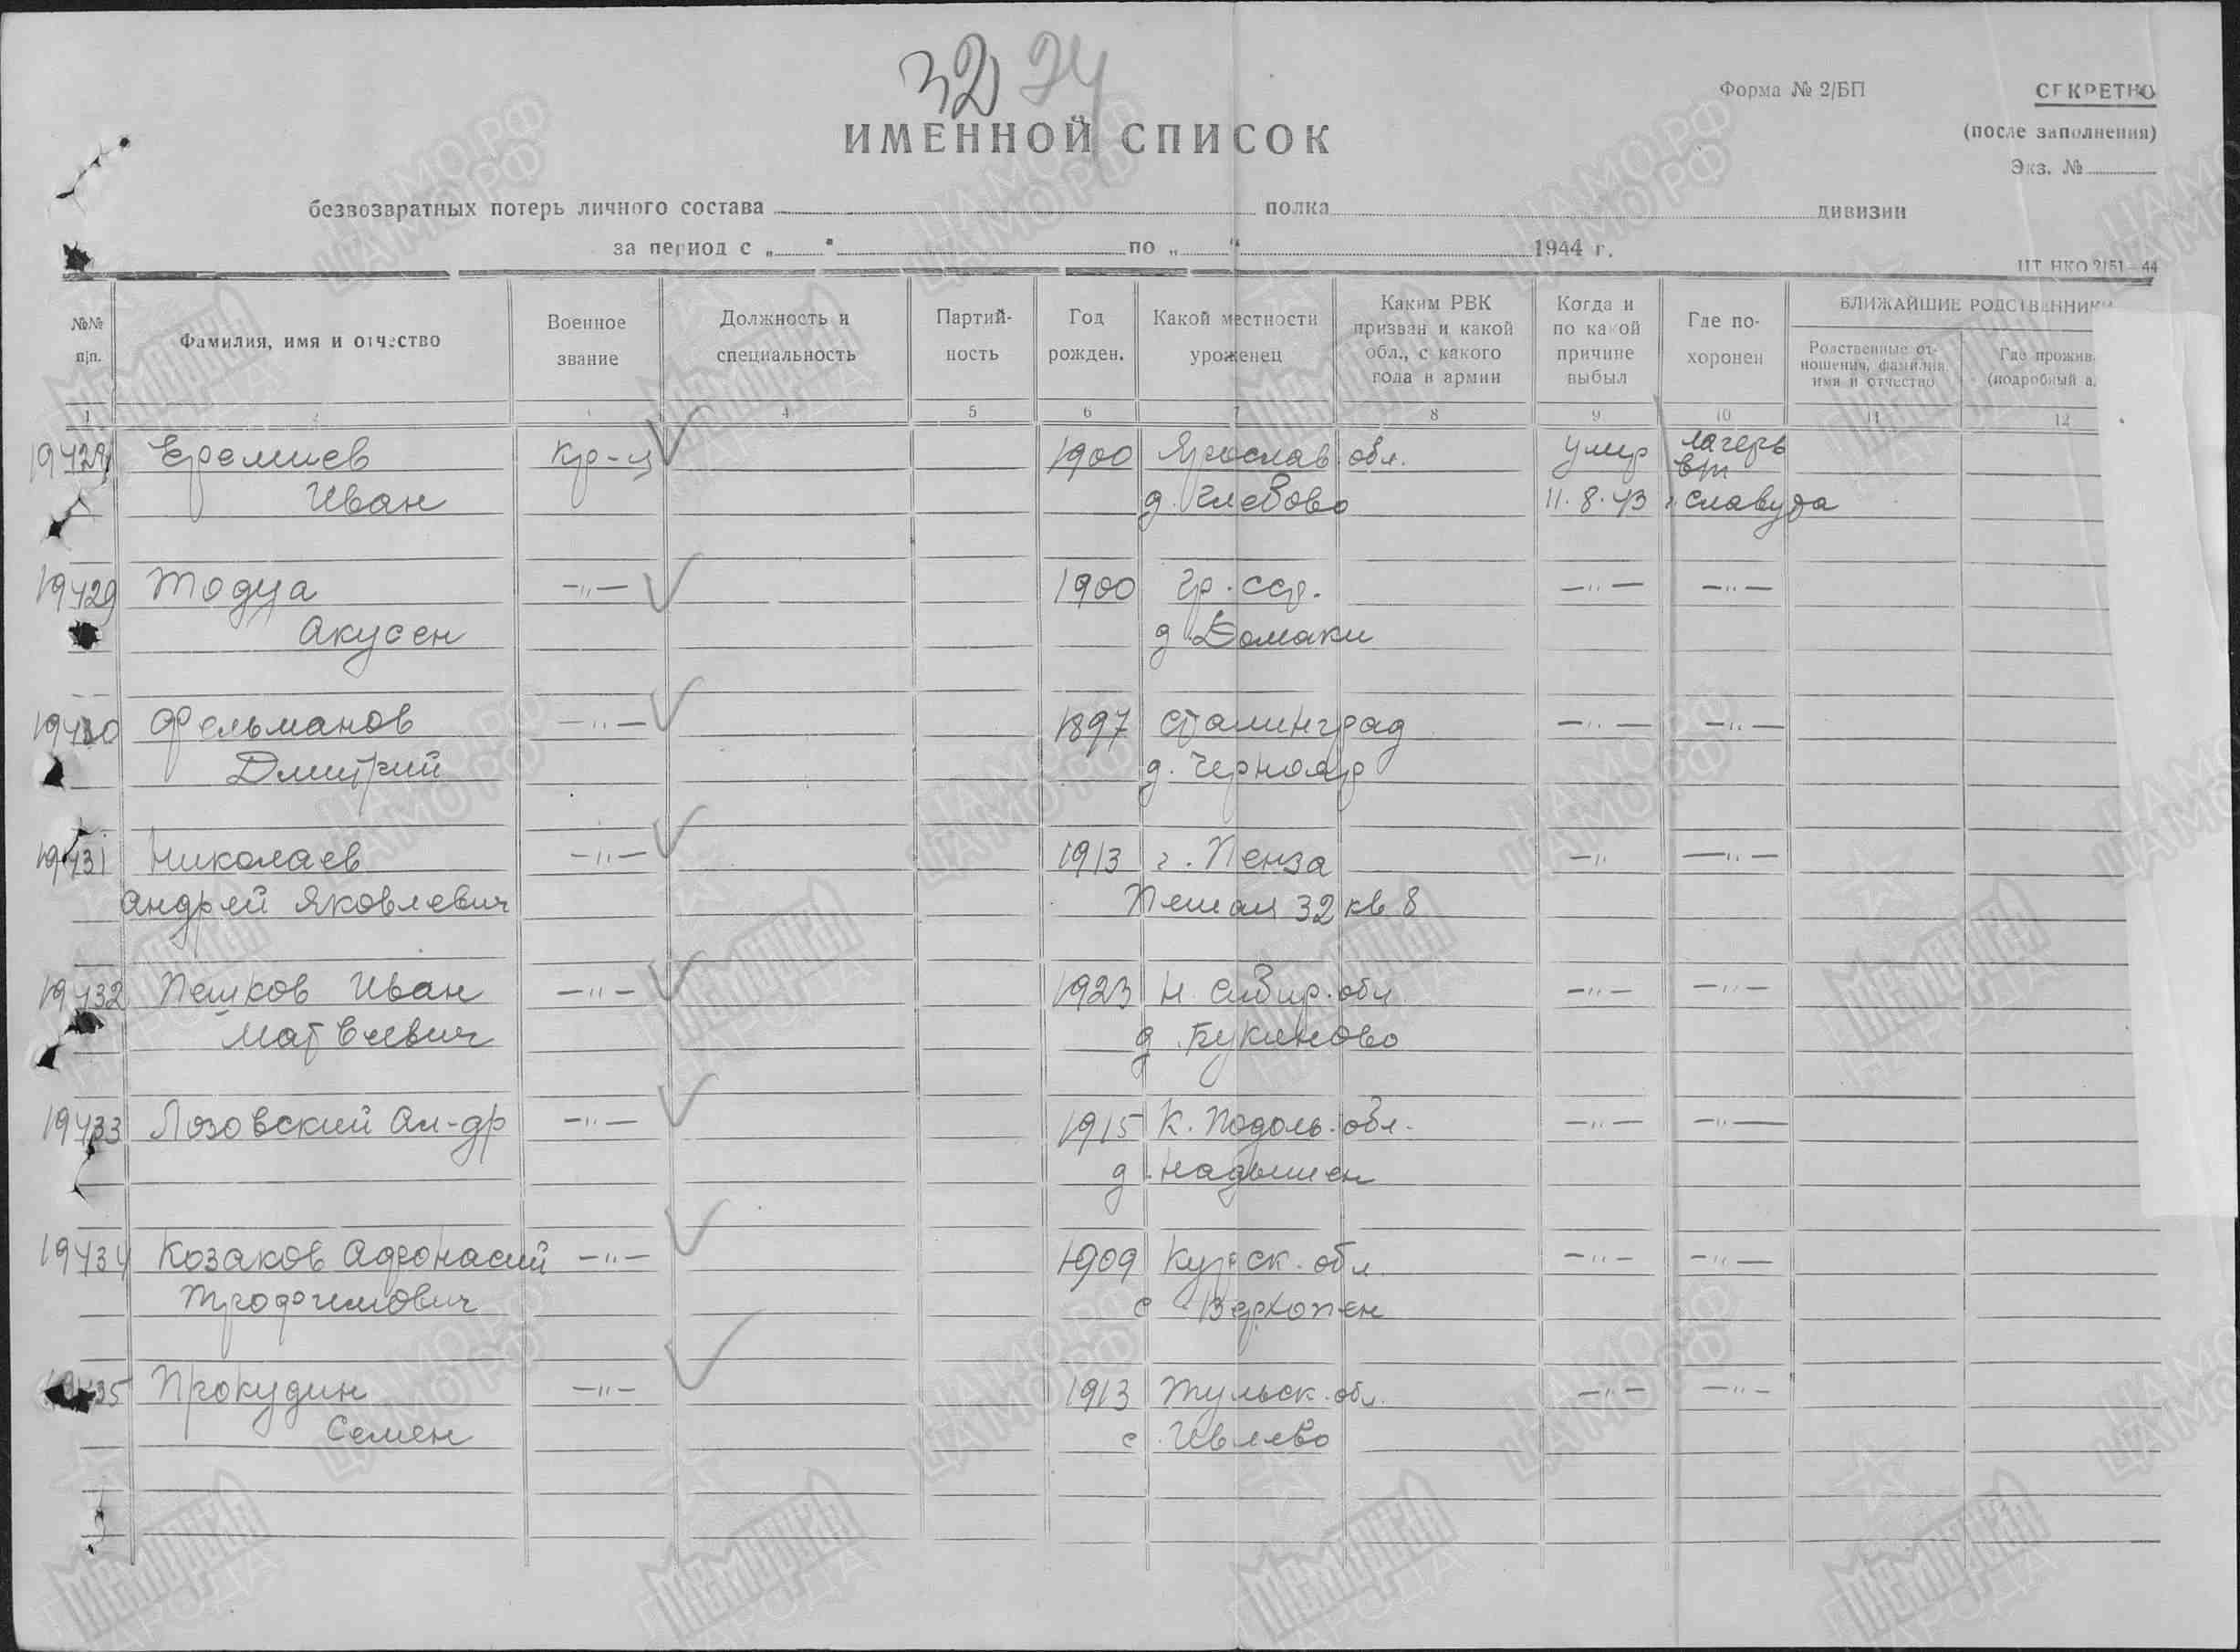 32 24
Форма № 2/БП
СЕКРЕТНО
(после заполнения)
Экз. №
ИМЕННОЙ СПИСОК
безвозвратных потерь личного состава полка дивизии
за период с „ “ по „ “ 1944 г.
ЦТ НКО 2151—44
№№ п|п.
Фамилия, имя и отчество
Военное звание
Должность и специальность
Партий- ность
Год рожден.
Какой местности уроженец
Каким РВК призван и какой обл., с какого года в армии
Когда и по какой причине выбыл
Где по- хоронен
БЛИЖАЙШИЕ РОДСТВЕННИКИ
Родственные от- ношения, фамилия, имя и отчество
Где прожив. (подробный а.
1 2 4 5 6 7 8 9 10 11 12
Еремиев кр-ц 1900 Ярослав обл. умер лагерь
Иван д. Глебово 11.8.43 г. Славута
19429 Тодуа —"— 1900 Гр. сср. —"— —"—
Акусен д. Домаки
Фельманов —"— 1897 Сталинград —"— —"—
Дмитрий д. Чернояр
19431 Николаев —"— 1913 г. Пенза —" —"—
Андрей Яковлевич 32 кв 8
19432 Пешков Иван —"— 1923 Н. Сибир. обл. —"— —"—
Матвеевич д. Букиново
19433 Лозовский Ал-др —"— 1915 К. Подоль. обл. —"— —"—
д.
19434 Козаков Афонасий —"— 1909 Курск. обл. —"— —"—
Трофимович с Верхопен
Прокудин —"— 1913 Тульск. обл. —"— —"—
Семен с. Ивлево